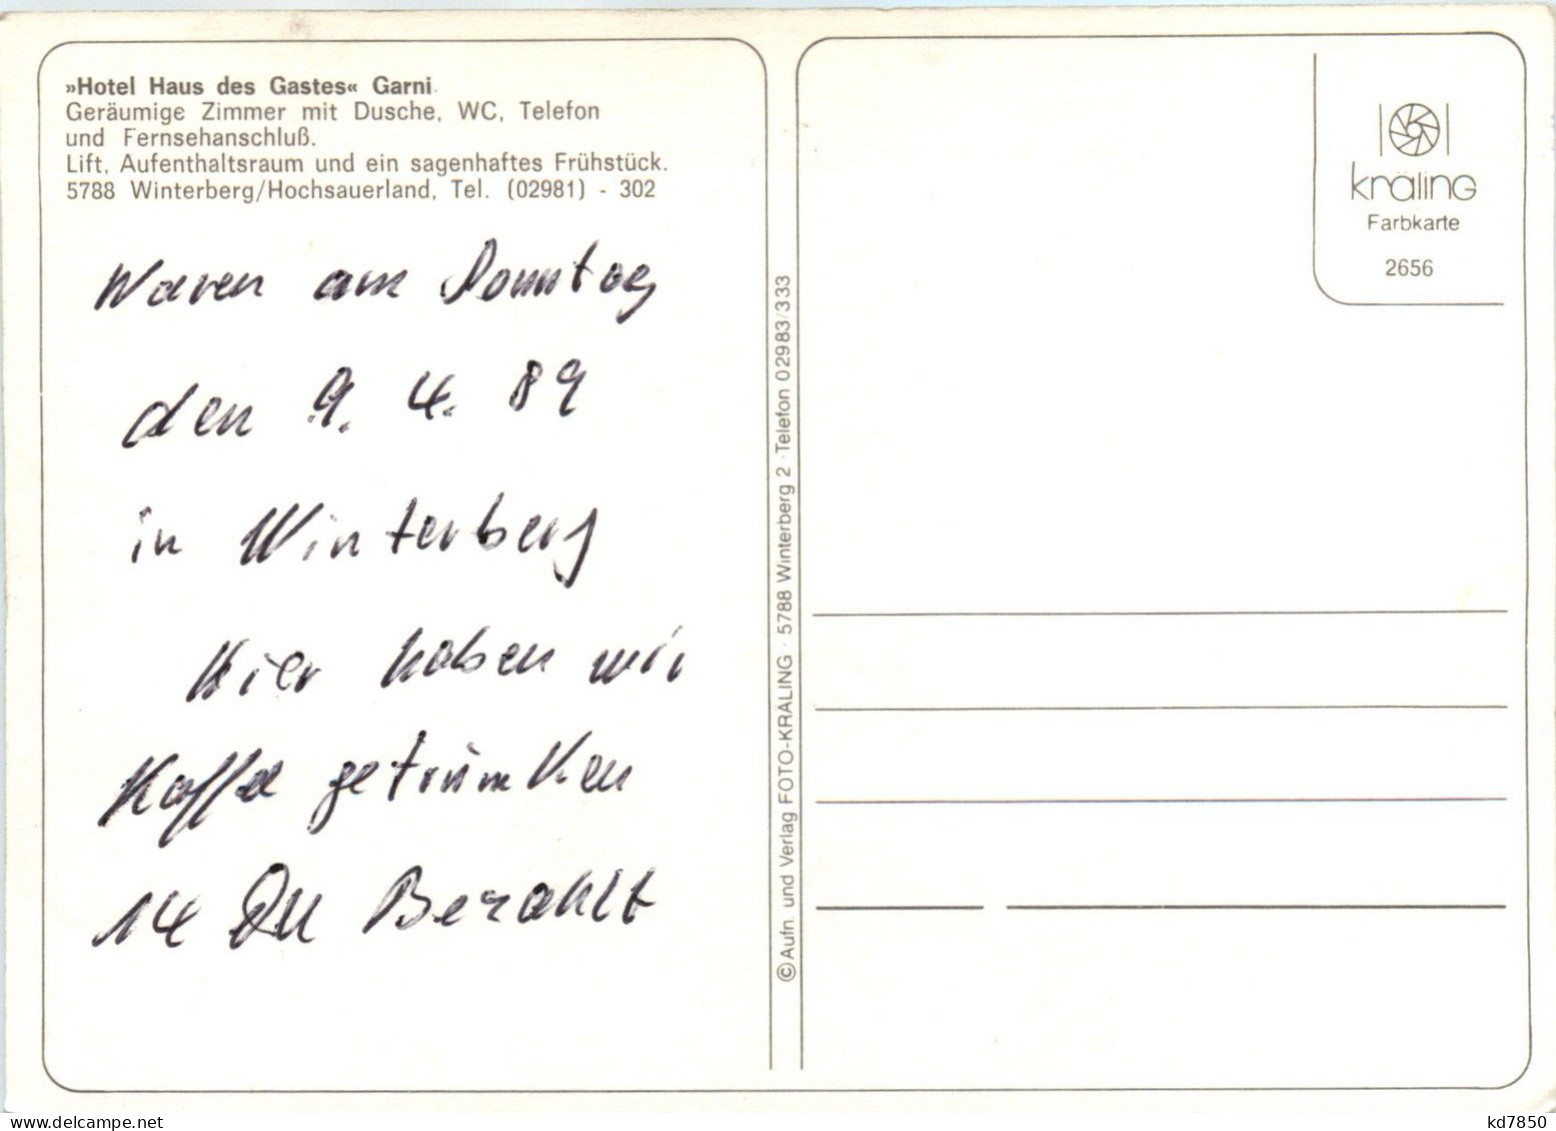 »Hotel Haus des Gastes« Garni
Geräumige Zimmer mit Dusche, WC, Telefon
und Fernsehanschluß.
Lift, Aufenthaltsraum und ein sagenhaftes Frühstück.
5788 Winterberg/Hochsauerland, Tel. (02981) - 302
Waren am Sonntag
den 9. 4. 89
in Winterberg
Hier haben wir
Kaffe getrunken
14 DM Bezahlt
© Aufn. und Verlag FOTO-KRALING · 5788 Winterberg 2 · Telefon 02983/333
kräling
Farbkarte
2656
delcampe.net
kd7850